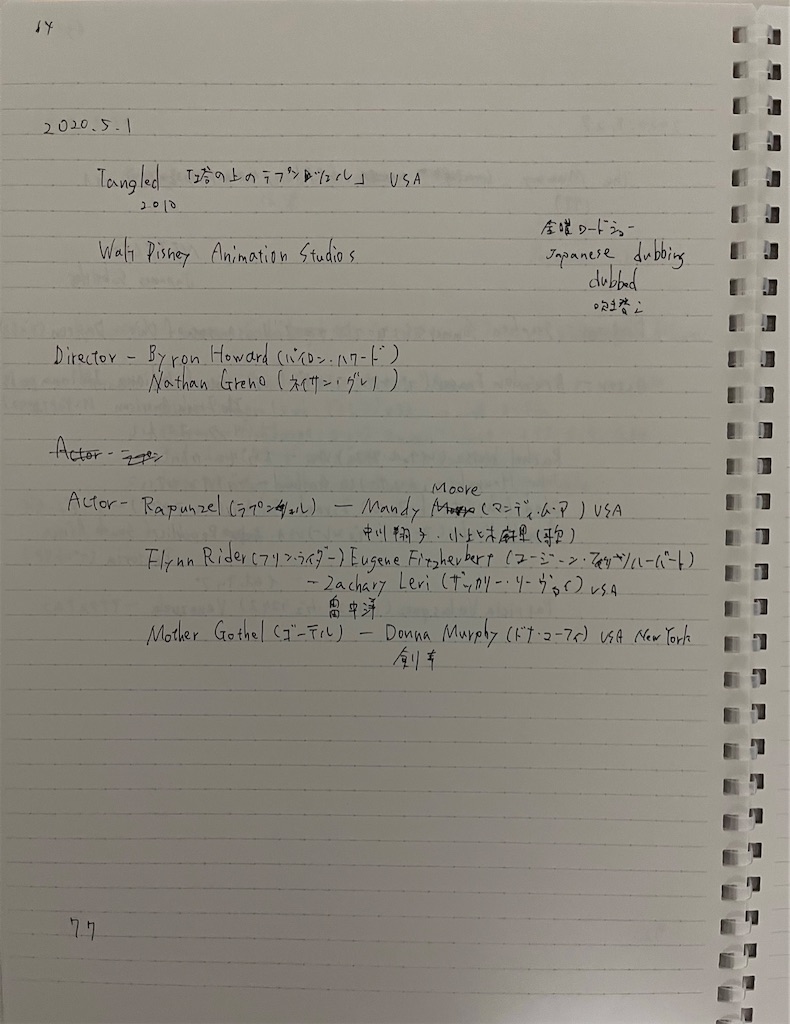 14
2020.5.1
Tangled 「塔の上のラプンツェル」 USA
2010
金曜ロードショー
Walt Disney Animation Studios
Japanese dubbing
dubbed
吹き替え
Director - Byron Howard (バイロン・ハワード)
Nathan Greno (ネイサン・グレノ)
Actor - ラプン
Moore
Actor - Rapunzel (ラプンツェル) - Mandy (マンディ・ムーア) USA
中川翔子・小此木麻里 (歌)
Flynn Rider (フリン・ライダー) Eugene Fitzherbert (ユージーン・フィッツハーバート)
- Zachary Levi (ザッカリー・リーヴァイ) USA
畠中洋
Mother Gothel (ゴーテル) - Donna Murphy (ドナ・マーフィ) USA New York
剣幸
77